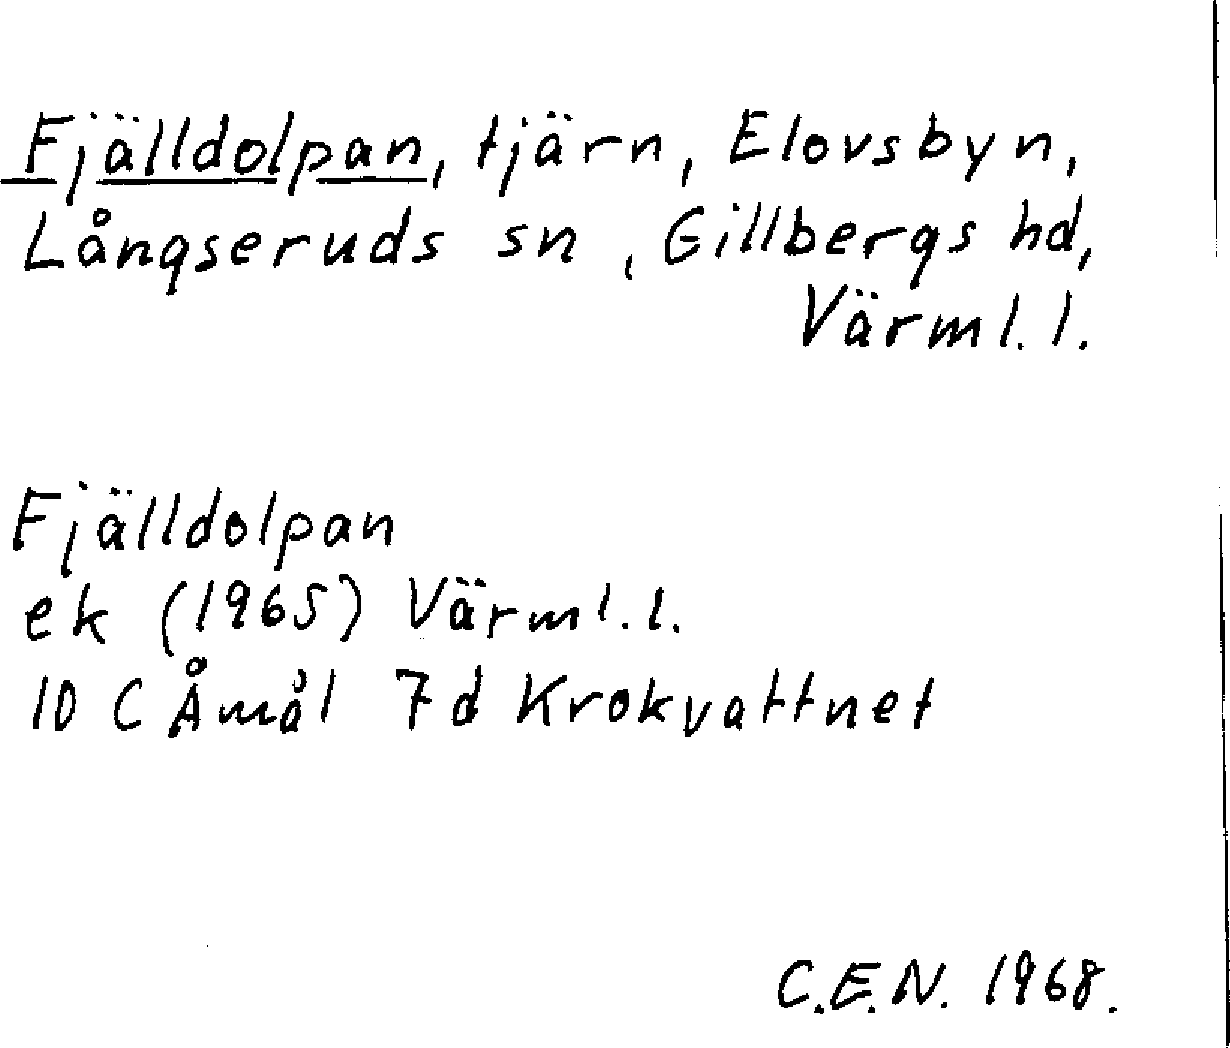 Fjälldolpan, tjärn, Elovsbyn,
Långseruds sn, Gillbergs hd,
Värml. l.
Fjälldolpan
ek (1965) Värml. l.
10 C Åmål 7d Krokvattnet
C.E.N. 1968.